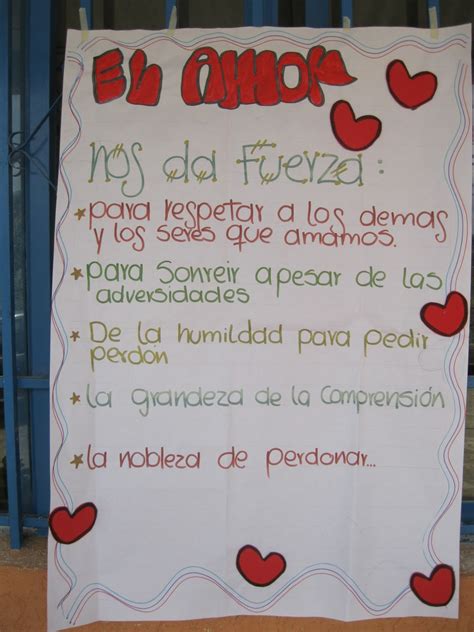 EL AMOR
Nos da fuerza:
*para respetar a los demas
y los seres que amamos.
*para sonreir apesar de las
adversidades
* De la humildad para pedir
perdón
*La grandeza de la Comprensión
*La nobleza de perdonar...